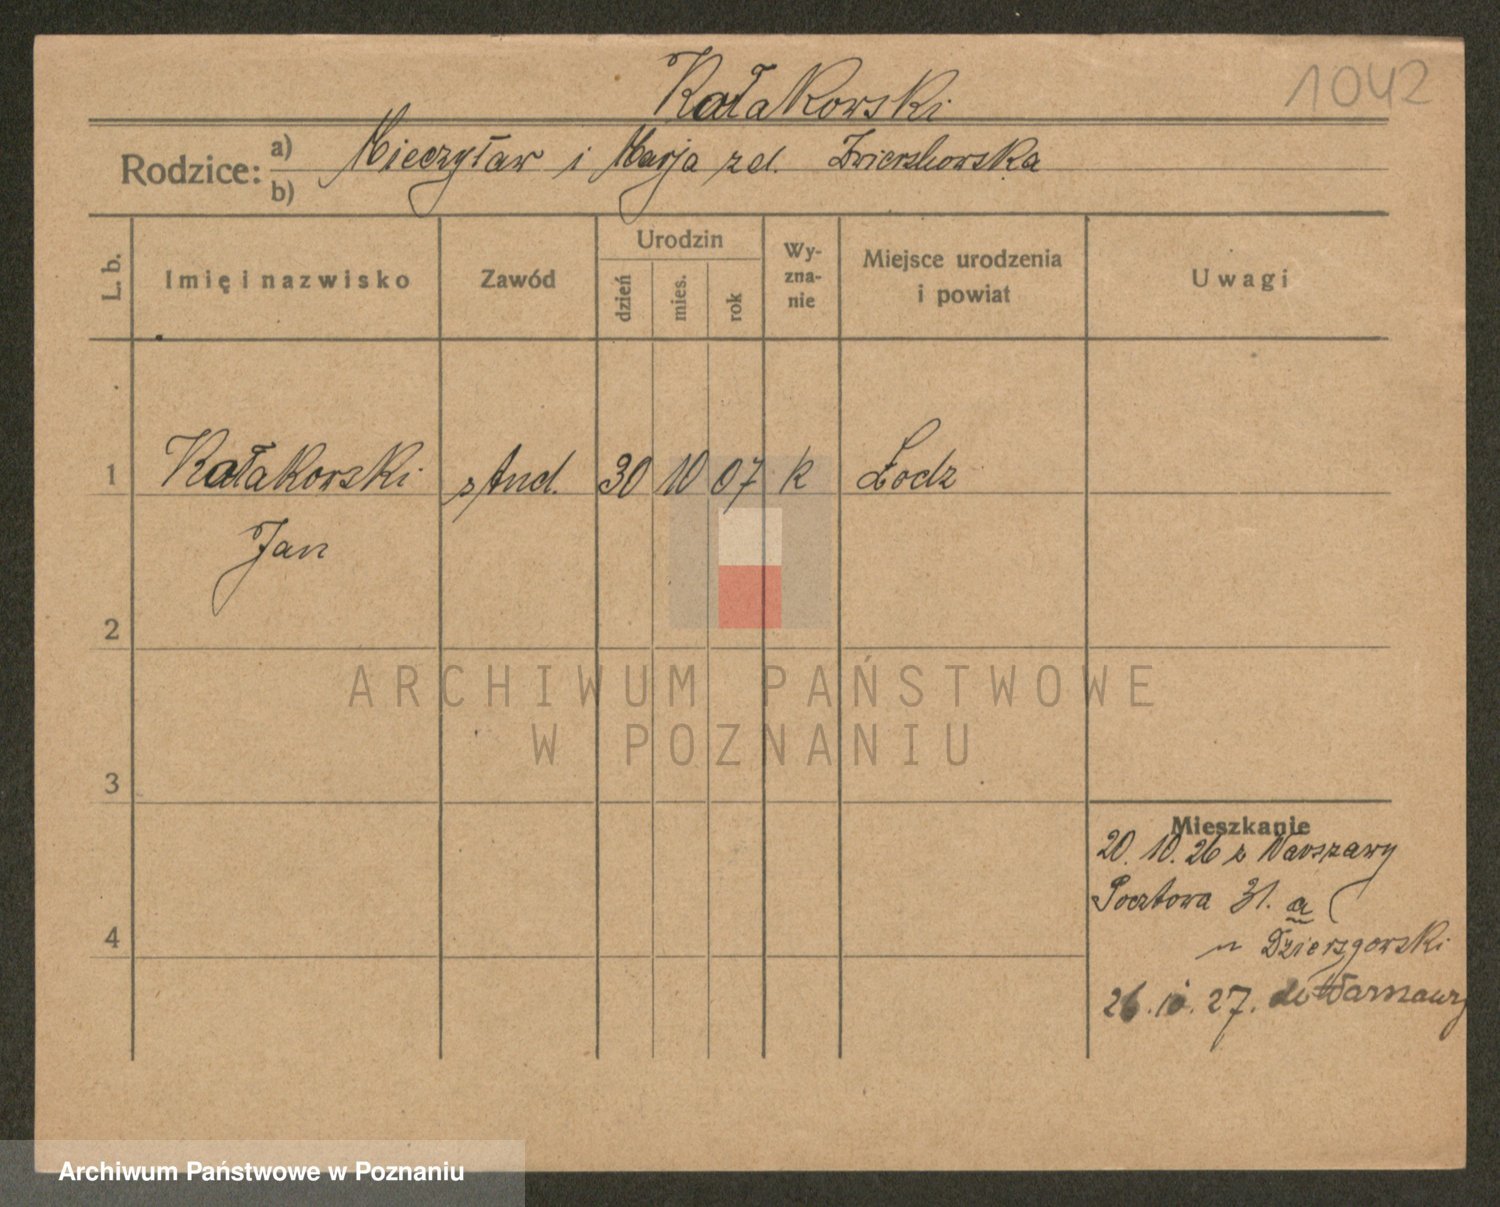 Kałakowski
1042
Rodzice: a) Mieczysław i Marja zd.
b)
L. b.
Imię i nazwisko
Zawód
Urodzin
dzień
mies.
rok
Wy-
zna-
nie
Miejsce urodzenia
i powiat
Uwagi
1 Kałakowski stud. 30 10 07 k Łodz
Jan
2
3
4
Mieszkanie
20. 10. 26 z Warszawy
Pocztowa 31. a
u Dzierzgowski
26. 10. 27. do Warszawy
ARCHIWUM PAŃSTWOWE
W POZNANIU
Archiwum Państwowe w Poznaniu